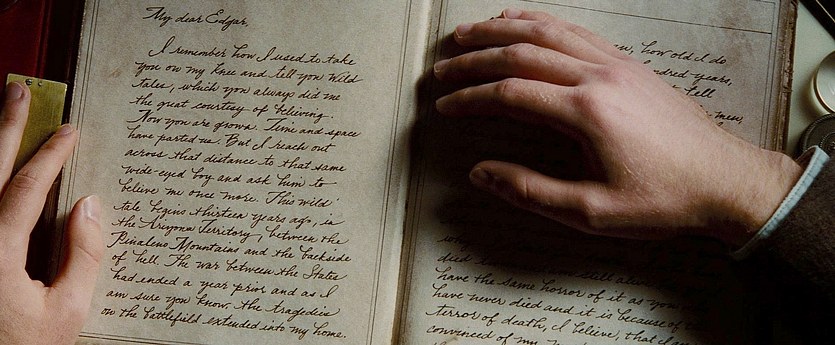 My dear Edgar,
I remember how I used to take
you on my knee and tell you wild
tales, which you always did me
the great courtesy of believing.
Now you are grown. Time and space
have parted us. But I reach out
across that distance to that same
wide-eyed boy and ask him to
believe me once more. This wild
tale begins thirteen years ago, in
the Arizona Territory, between the
Pinaleno Mountains and the backside
of hell. The war between the States
had ended a year prior and as I
am sure you know, the tragedies
on the battlefield extended into my home.
how old I do
years,
tell
men;
died
still
have the same horror of it as you
have never died and it is because of
terror of death, I believe, that I
convinced of my